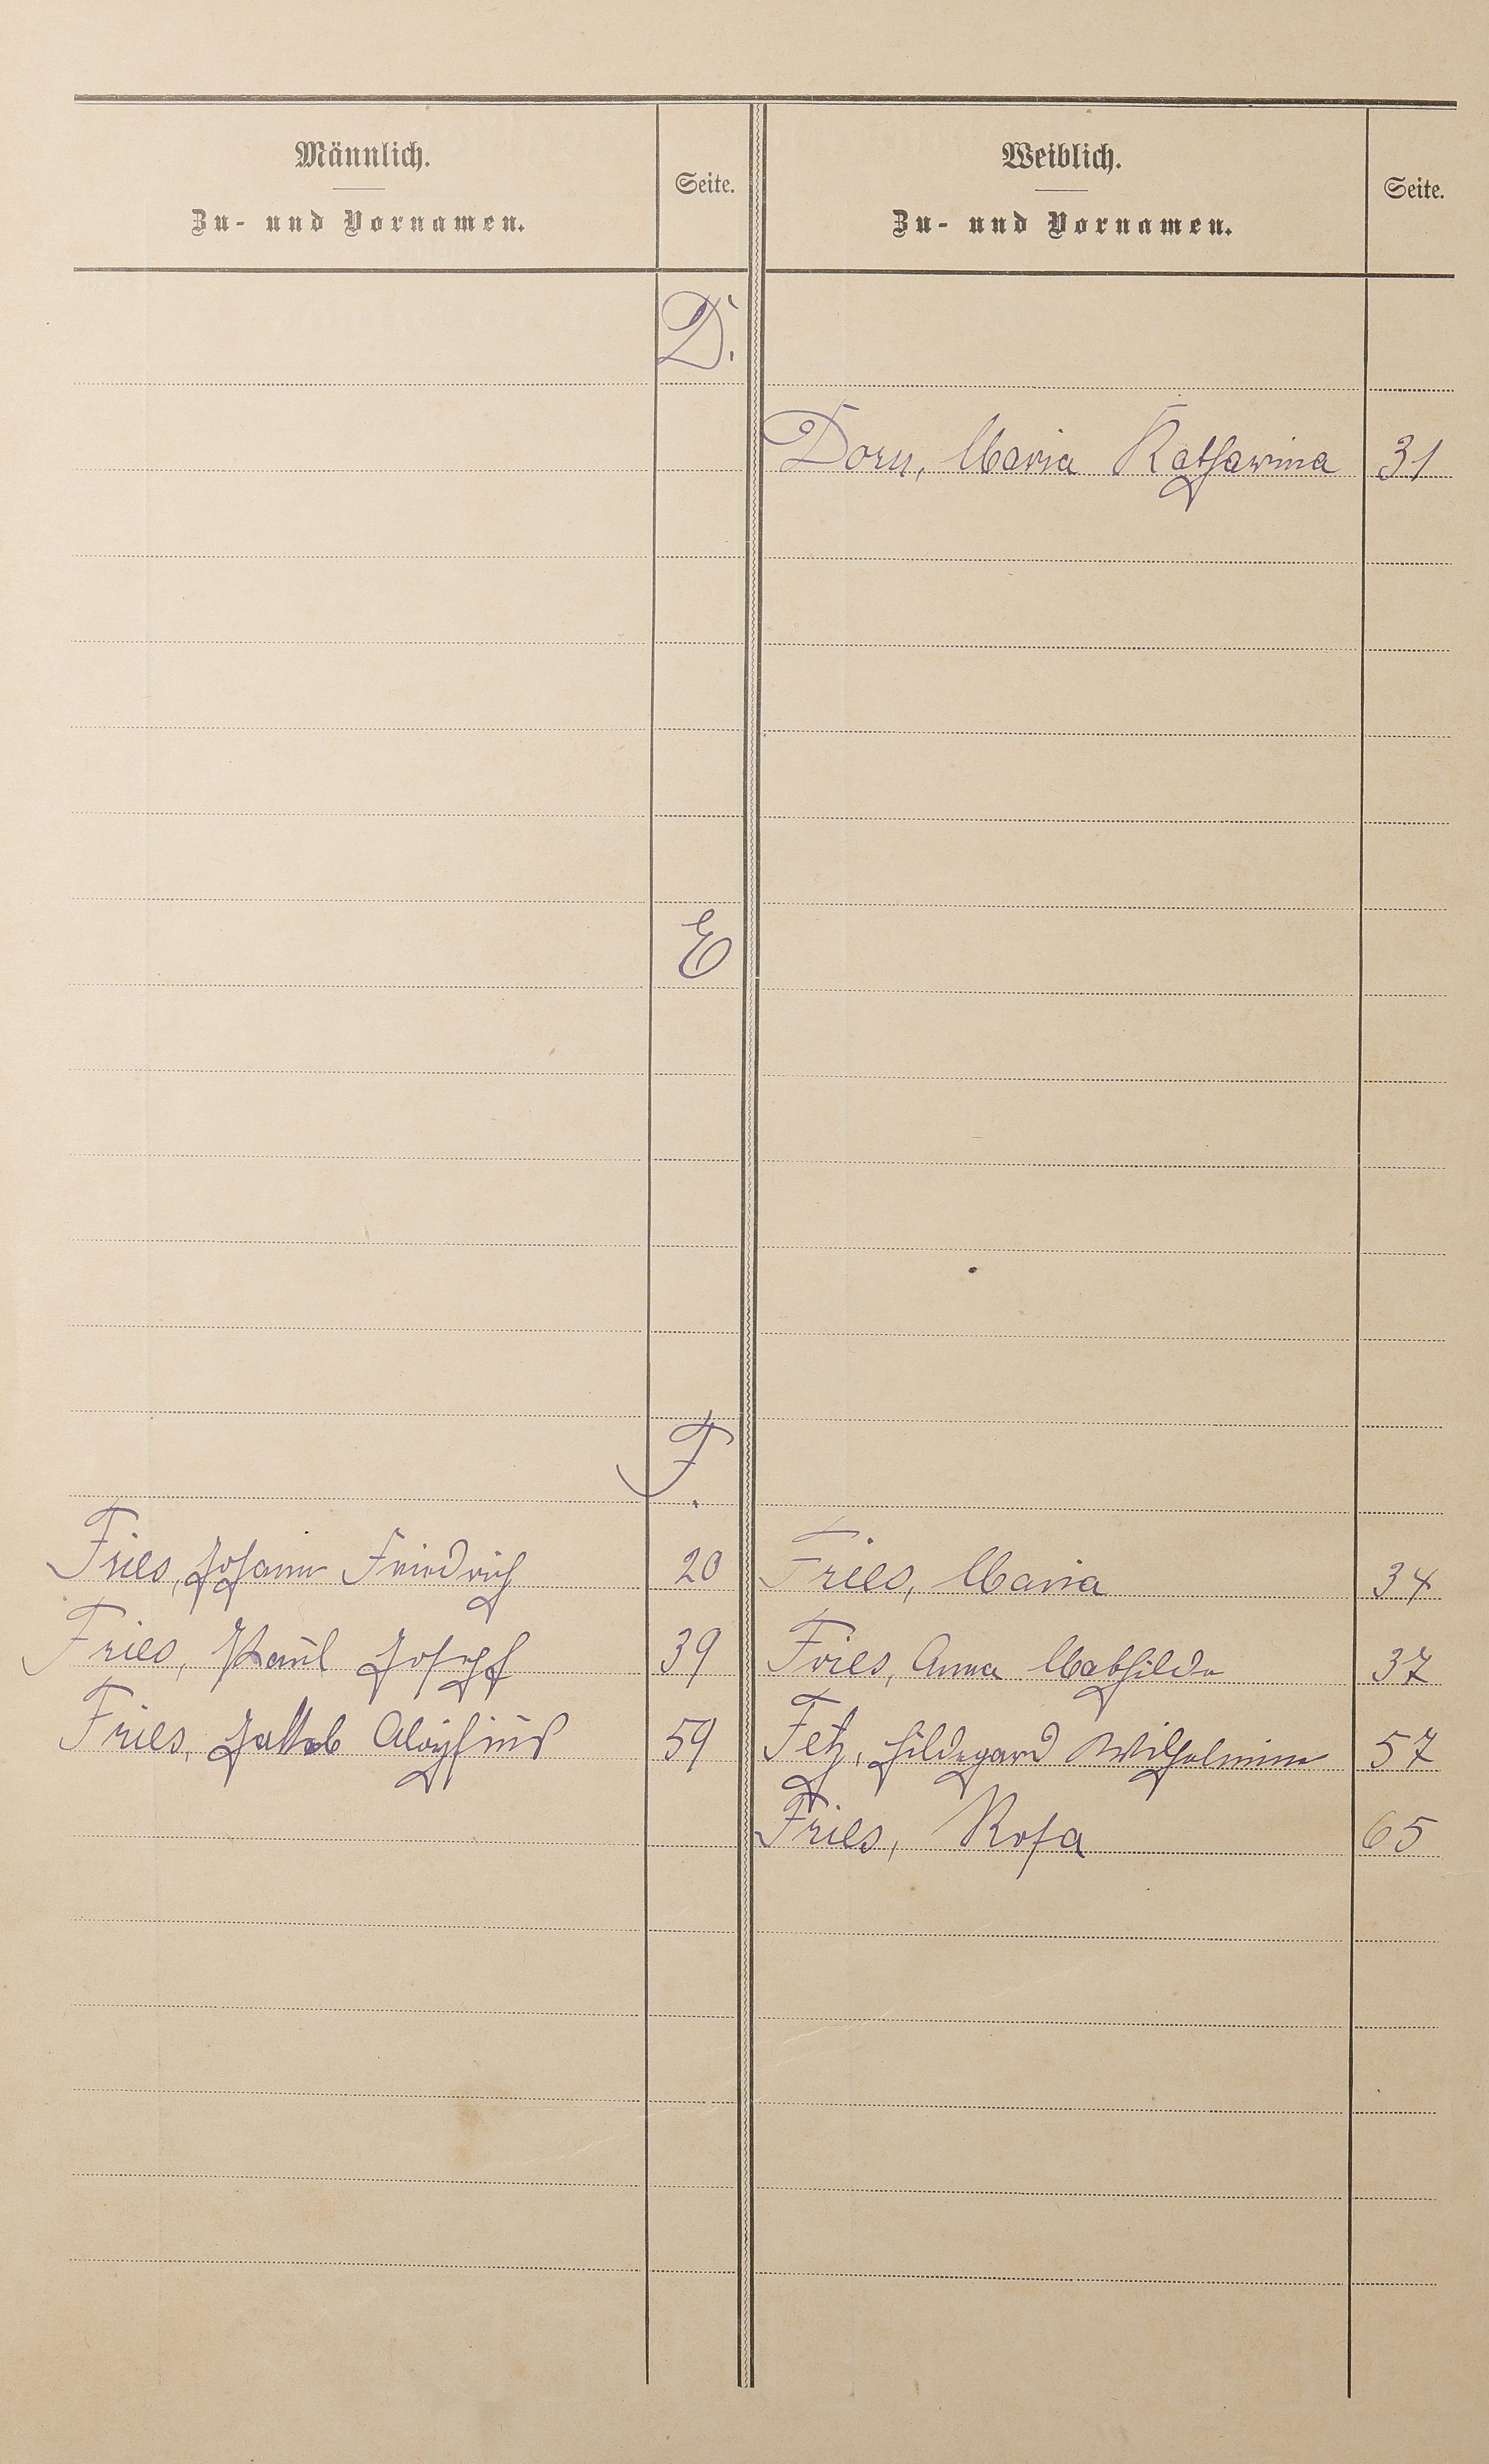 Männlich.
Zu- und Vornamen.
Seite.
Weiblich.
Zu- und Vornamen.
Seite.
D.
Dorn, Maria Katharina 31
E
F.
Fries, Johann Friedrich 20 Fries, Maria 34
Fries, Paul Joseph 39 Fries, Anna Mathilde 37
Fries, Jakob Aloysius 59 Fetz, Hildegard Wilhelmine 57
Fries, Rosa 65